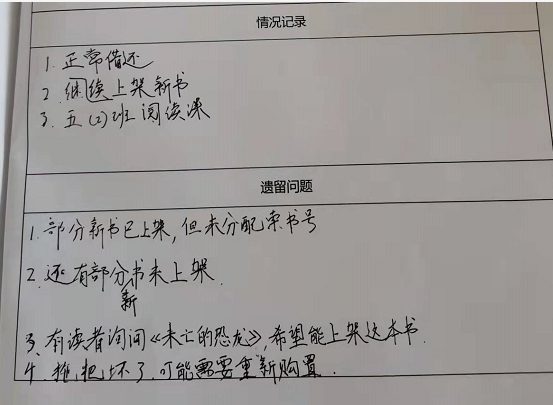 情况记录
1. 正常借还
2. 继续上架新书
3. 五(2)班阅读课
遗留问题
1. 部分新书已上架,但未分配索书号
2. 还有部分新书未上架.
3、有读者询问《未亡的恐龙》,希望能上架这本书.
4. 拖把坏了,可能需要重新购置.